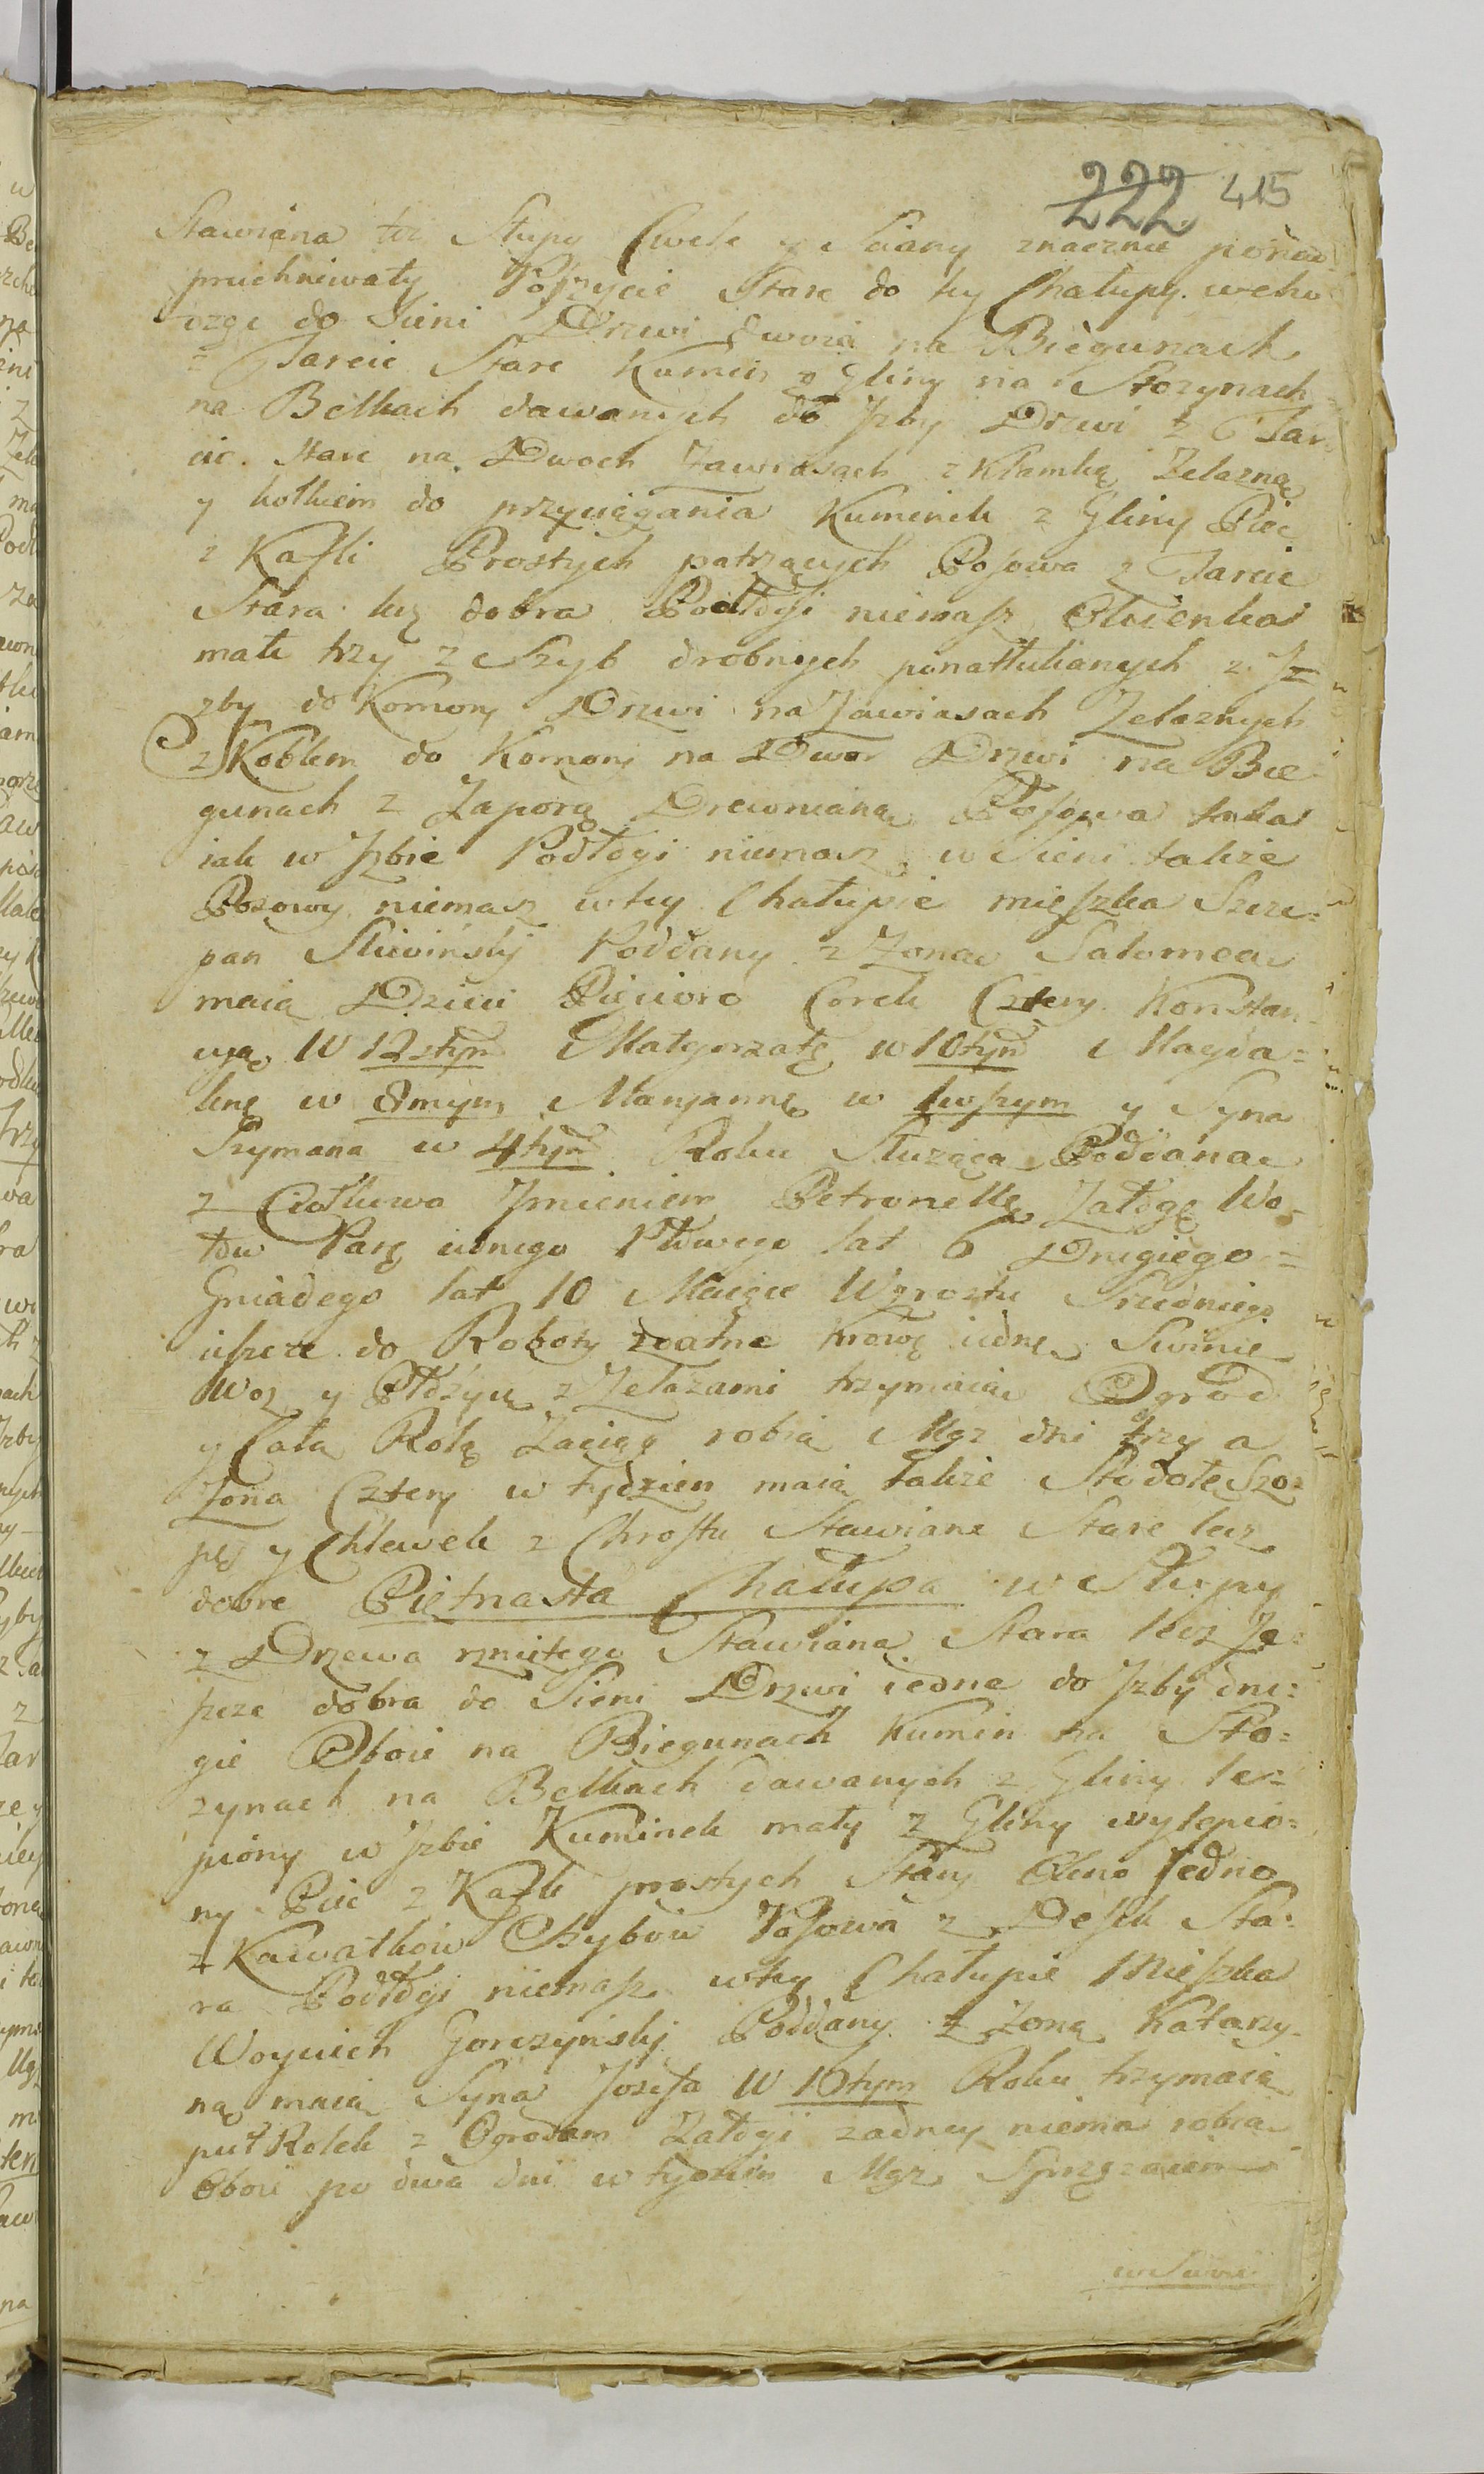 222 415
Stawiana też Słupy Cwele y Sciany znacznie ponad
pruchniwały Poszycie Stare do tey Chałupy wcho
dząc do Sieni Drzwi dwoie na Biegunach
z Tarcic Stare Kumin z Gliny na Stozynach
na Belkach dawanych do Jzby Drzwi z Tar
cic Stare na Dwoch Zawiasach z Klamką Zelazną
y kołkiem do przyciągania Kuminek z Gliny Piec
z Kafli Prostych patrzących Posowa z Tarcic
Stara lecz dobra Podłogi niemasz Okienka
małe trzy z Szyb drobnych ponatłukanych z J=
zby do Komory Drzwi na Zawiasach Zelaznych
z Koblem do Komory na Dwor Drzwi na Bie
gunach z Zaporą Drewnianą Posowa taka
iak w Jzbie Podłogi niemasz w Sieni także
Posowy niemasz w tey Chałupie mieszka Szcze=
pan Sliwinsky Poddany z Zoną Salomeą
maią Dzieci Pięcioro Corek Cztery Konstan=
cyą W 12stym Małgorzatę w 10tym Magda=
lenę w 8mym Maryannę w 1wszym y Syna
Szymana w 4tym Roku Służącą Poddaną
z Ciotkowa Jmieniem Petronellę Załogę Wo=
łow Parę iednego Płowego lat 6 Drugiego=
Gniadego lat 10 Maiące Wzrostu Sredniego
ieszcze do Roboty zdatne krowę iednę Swinię
Woz y Płozyą z Zelazami trzymaią Ogrod
y Całą Rolę Zaciąg robią Mąz dni trzy a
Zona Cztery w tydzien maią także Stodołę Szo=
pę y Chlewek z Chrostu Stawiane Stare lecz
dobre Piętnasta Chałupa w Słupy
z Drzewa rzniętego Stawiana Stara lecz Je=
szcze dobra do Sieni Drzwi iedne do Jzby dru=
gie Oboie na Biegunach Kumin na Sto=
zynach na Belkach dawanych z Gliny lez=
piony w Jzbie Kuminek mały z Gliny wylepio=
ny Piec z Kafli prostych Stary Okno Jedno
z Kawałkow Szybow Posowa z Desek Sta=
ra Podłogi niemasz w tey Chałupie Mieszka
Woyciech Gorczynsky Poddany z Zoną Katarzy=
ną maią Syna Jozefa W 10tym Roku trzymaią
puł Rolek z Ogrodam Załogi zadney niema robią
Oboie po dwa dni w tydzien Mąz Sprzęzaiem